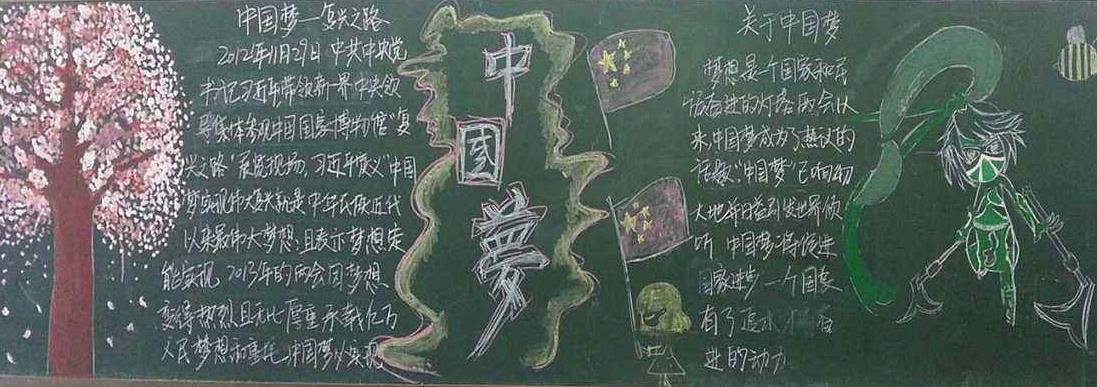 中国梦—复兴之路
2012年11月29日 中共中央党
书记习近平带领新一界中央领
导集体参观中国国家博物馆"复
兴之路"展览现场,习近平定义"中国
梦实现伟大复兴就是中华民族近代
以来最伟大梦想;且表示梦想定
能实现 2013年的两会因梦想
变得热烈且无比厚重承载亿万
人民梦想和重托 中国梦以实现
中
國
夢
关于中国梦
梦想是一个国家和民
族奋进的灯塔 两会以
来,中国梦成为了热议的
话题:"中国梦"已响彻
大地并日益引发世界倾
听 中国梦将促进
国家进步 一个国家
有了追求才
进的动力